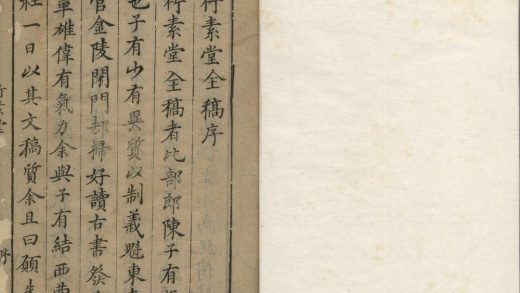 行素堂全稿序
行素堂全稿者比部郎陳子有
也子有少有異質以制義魁東
官金陵閉門却掃好讀古書發
章雄偉有氣力余與子有結西
社一日以其文稿質余且曰願
序